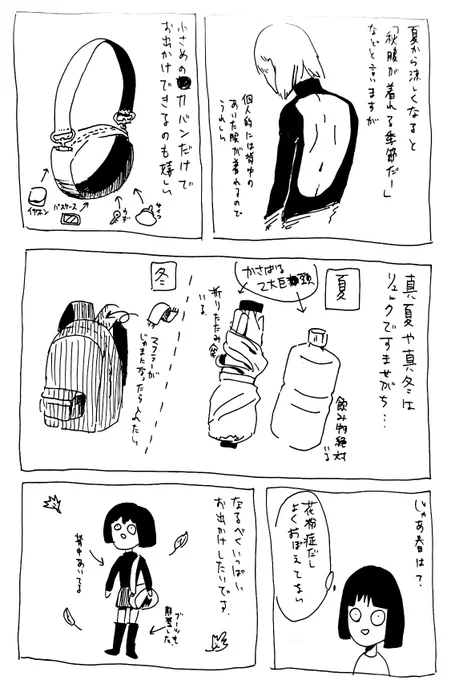 夏から涼しくなると
「秋服が着れる季節だー」
などと言いますが
個人的には背中の
あいた服が着れるので
うれしい
小さめのカバンだけで
お出かけできるのも嬉しい
イヤホン
パスケース
カギ
サイフ
真夏や真冬は
リュックですませがち…
夏
かさばる
2大巨頭
飲み物絶対
いる
折りたたみ傘
いる
冬
マフラーが
じゃまになったら入れたい
じゃあ春は?
花粉症だし
よくおぼえてない
なるべくいっぱい
お出かけしたいです.
背中あいてる
ブーツも